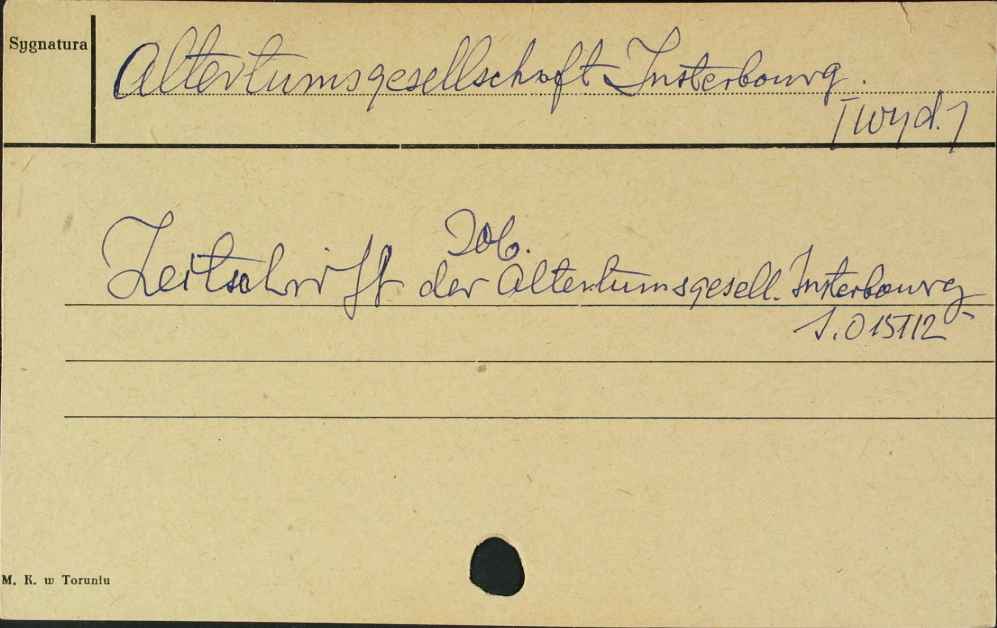 Sygnatura
Altertumsgesellschaft Insterbourg.
[wyd.]
Zob.
Zeitschrift der Altertumsgesell. Insterbourg
M. K. w Toruniu